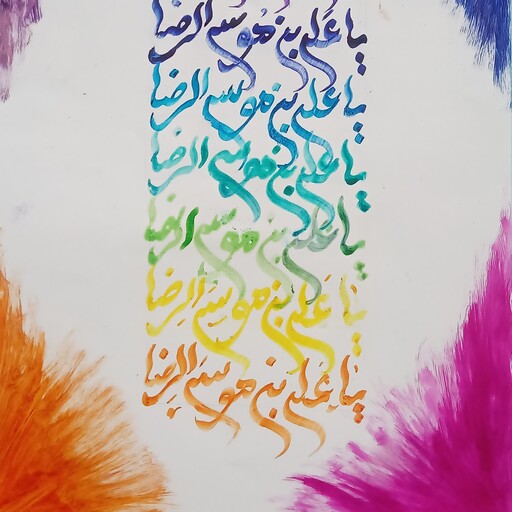 یا علی بن موسی الرضا
یا علی بن موسی الرضا
یا علی بن موسی الرضا
یا علی بن موسی الرضا
یا علی بن موسی الرضا
یا علی بن موسی الرضا